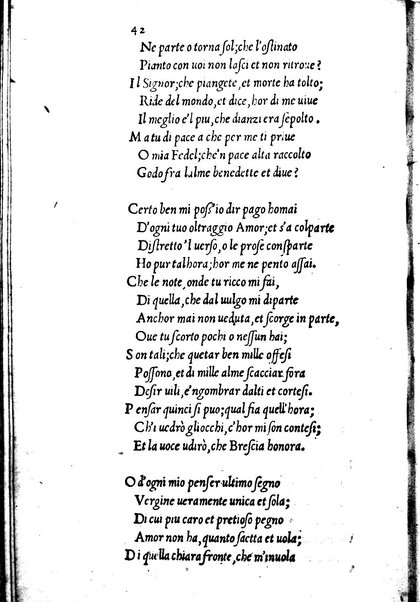 42
Ne parte o torna sol; che l'ostinato
Pianto con uoi non lasci et non ritroue?
Il Signor; che piangete, et morte ha tolto;
Ride del mondo, et dice, hor di me uiue
Il meglio e'l piu, che dianzi era sepolto.
Ma tu di pace a che per me ti priue
O mia Fedel; che'n pace alta raccolto
Godo fra l'alme benedette et diue?
Certo ben mi poss'io dir pago homai
D'ogni tuo oltraggio Amor; et s'a colparte
Distretto'l uerso, o le prose consparte
Ho pur talhora; hor me ne pento assai.
Che le note, onde tu ricco mi fai,
Di quella, che dal uulgo mi diparte
Anchor mai non ueduta, et scorge in parte,
Oue tu scorto pochi o nessun hai;
Son tali; che quetar ben mille offesi
Possono, et di mille alme scacciar fora
Desir uili, e'ngombrar d'alti et cortesi.
Pensar quinci si puo; qual fia quell'hora;
Ch'i uedrò gliocchi, c'hor mi son contesi;
Et la uoce udirò, che Brescia honora.
O d'ogni mio penser ultimo segno
Vergine ueramente unica et sola;
Di cui piu caro et pretioso pegno
Amor non ha, quanto saetta et uola;
Di quella chiara fronte, che m'inuola